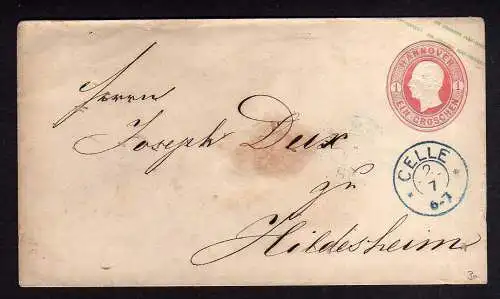 HANNOVER
1 1
EIN GROSCHEN
Herrn
Joseph Dux
CELLE
7
6-7
zu
Hildesheim